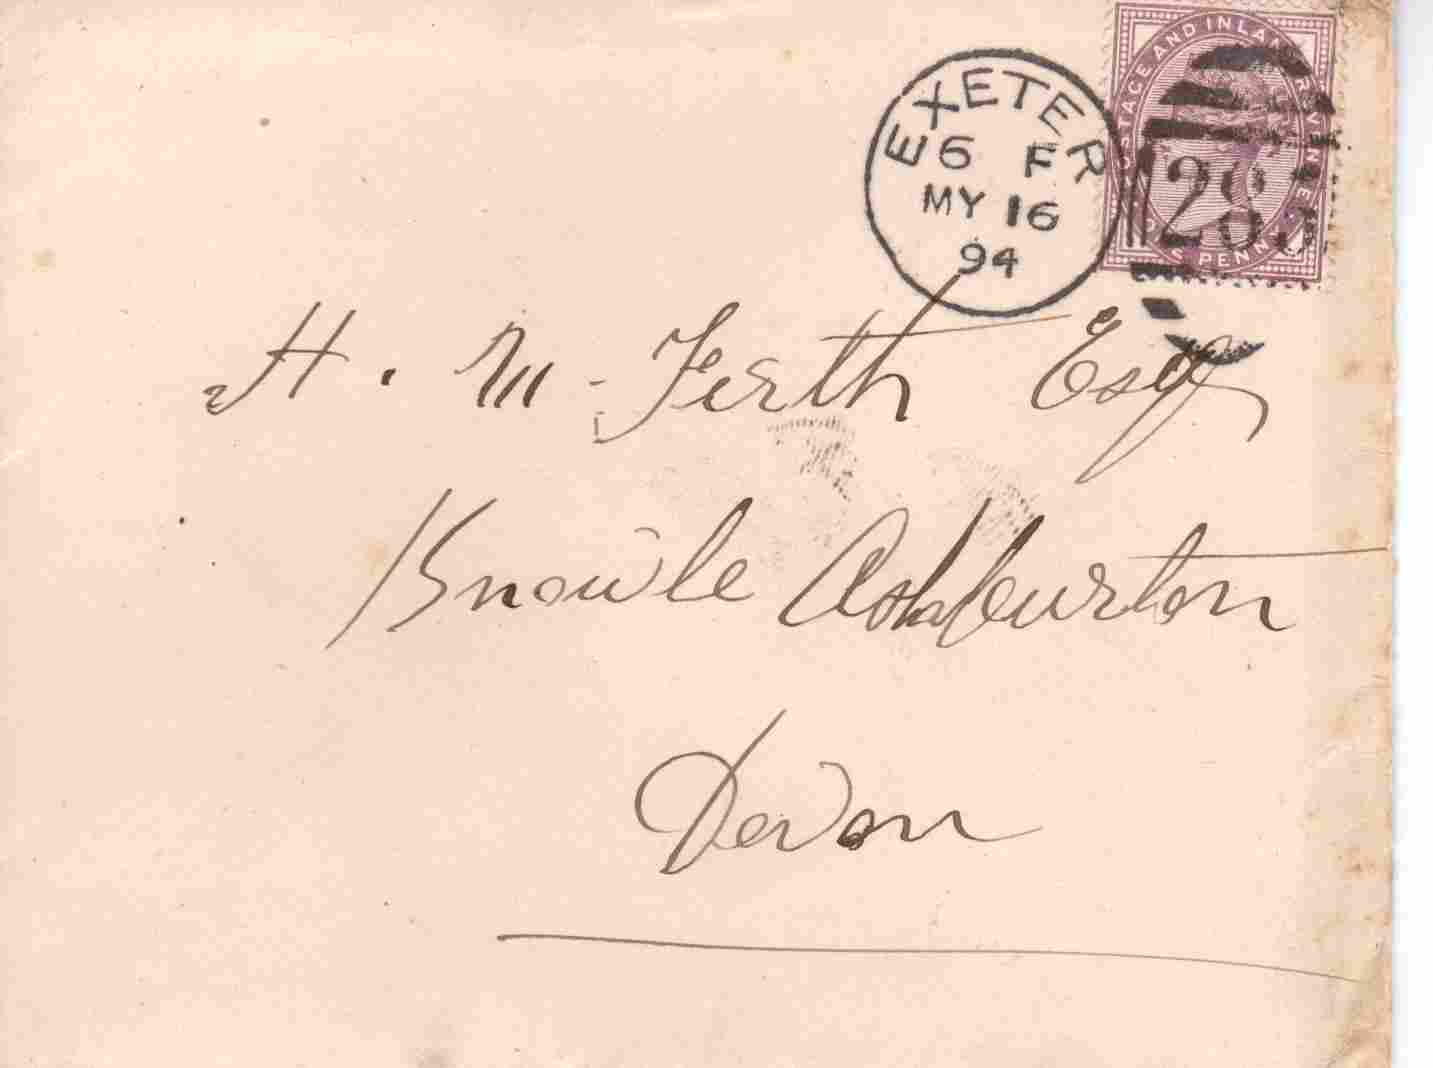 POSTAGE AND INLAND REVENUE
ONE PENNY
EXETER
6 F
MY 16
94
285
H. M. Firth Esq
Knowle Ashburton
Devon